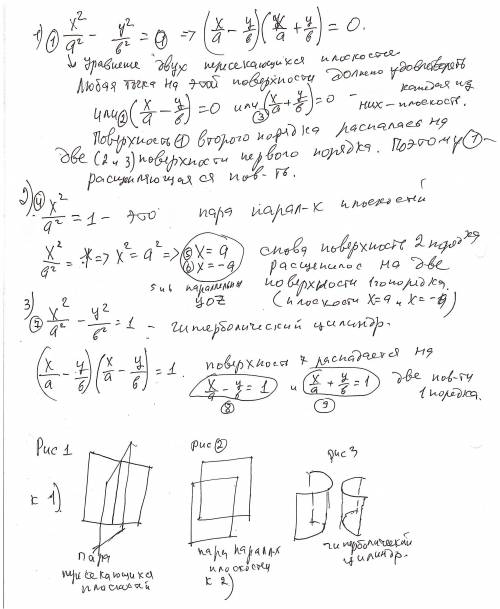 1) ① x²/a² - y²/b² = 0 => (x/a - y/b)(x/a + y/b) = 0.
Уравнение двух пересекающихся плоскостей
Любая точка на этой поверхности должно удовлетворять
или ② (x/a - y/b) = 0 или ③ (x/a + y/b) = 0 - каждая из
них - плоскость.
Поверхность ① второго порядка распалась на
две (2 и 3) поверхности первого порядка. Поэтому ① -
расщепляющаяся пов-ть.
2) ④ x²/a² = 1 - это пара парал-х плоскостей
x²/a² = 1 => x² = a² => ⑤ x = a ⑥ x = -a
снова поверхность 2 порядка
расщепилось на две
5 и 6 параллельны yoz
поверхности 1го порядка.
(плоскости x=a и x=-a)
3) ⑦ x²/a² - y²/b² = 1 - гиперболический цилиндр.
(x/a - y/b)(x/a - y/b) = 1.
поверхность 7 распадается на
x/a - y/b = 1 и x/a + y/b = 1 две пов-ти
1 порядка.
⑧ ⑨
Рис 1
рис ②
рис 3
к 1)
пара
пересекающихся
плоскостей
пара паралл-х
плоскостей
к 2)
гиперболический
цилиндр.